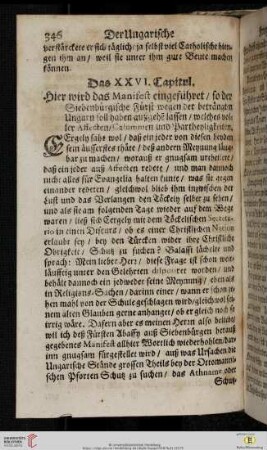 346 Der Ungarische
verstärckete er sich täglich; ja selbst viel Catholische hin-
gen ihm an / weil sie unter ihm gute Beute machen
können.
Das XXVI. Capitel.
Hier wird das Manifest eingeführet / so der
Siebenbürgische Fürst wegen der betrangten
Ungarn soll haben außgehē lassen / welches vol-
ler Affecten / Calumnien und Partheyligkeit.
Gergely sahe wol / daß ein jeder von diesen beyden
sein äusserstes thäte / deß andern Meynung läug-
bar zu machen / worauß er gnugsam urtheilete /
daß ein jeder auß Affecten redete / und man dannoch
nicht alles für Evangelia halten / was sie gegen
einander redeten / gleichwol blieb ihm inzwischen der
Lust und das Verlangen den Töckely selbst zu sehen /
und als sie am folgenden Tage wieder auf dem Wege
waren / ließ sich Cergely mit dem Töckelischen Secreta-
rio in einen Discours / ob es einer Christlichen Nation
erlaubt sey / bey den Türcken wider ihre Christliche
Obrigkeit / Schutz zu suchen? Balassi lächelte und
sprach: Mein lieber Herr / diese Frage ist schon weit-
läufftig unter den Gelehrten disputiret worden / und
behält dannoch ein jedweder seine Meynung / eben als
in Religions-Sachen / darinn einer / wann er schon ze-
hen mahl von der Schule geschlagen wird / gleichwol sei-
nem alten Glauben gerne anhanget / ob er gleich noch so
irrig wäre. Dafern aber es meinen Herrn also beliebet
will ich deß Fürsten Abaffy auß Siebenbürgen herauß
gegebenes Manifest allhier Wortlich wiederhohlen / dar-
inn gnugsam fürgestellet wird / auß was Ursachen die
Ungarische Stände grossen Theils bey der Ottomanni-
schen Pforten Schutz zu suchen / das oder
Schutz-